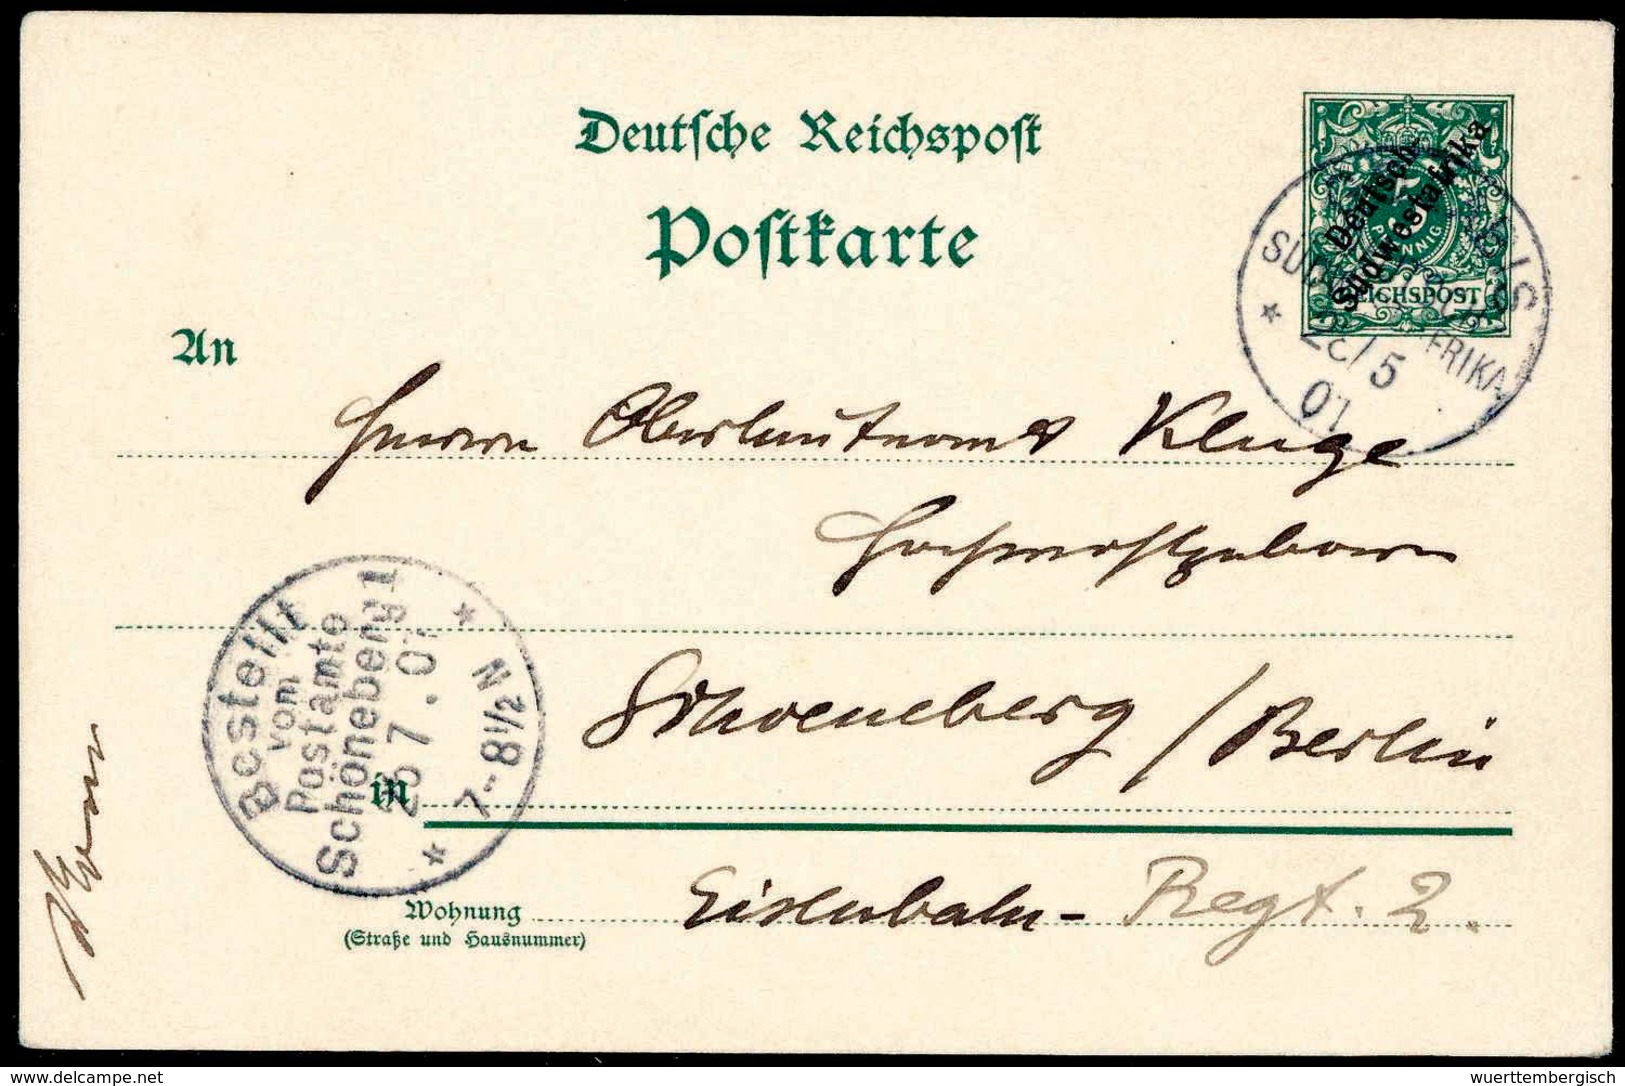 Deutsche Reichspost
Postkarte
5
PFENNIG
REICHSPOST
Deutsch-
Südwestafrika
AFRIKA
28/5
01
An
Herrn Oberleutnant Kluge
Hochwohlgeboren
Schoeneberg/Berlin
in
Bestellt
vom
Postamte
Schöneberg 1
25 7.01
7-8½ N
Wohnung
(Straße und Hausnummer)
Eisenbahn- Regt. 2.
www.delcampe.net
wuerttembergisch